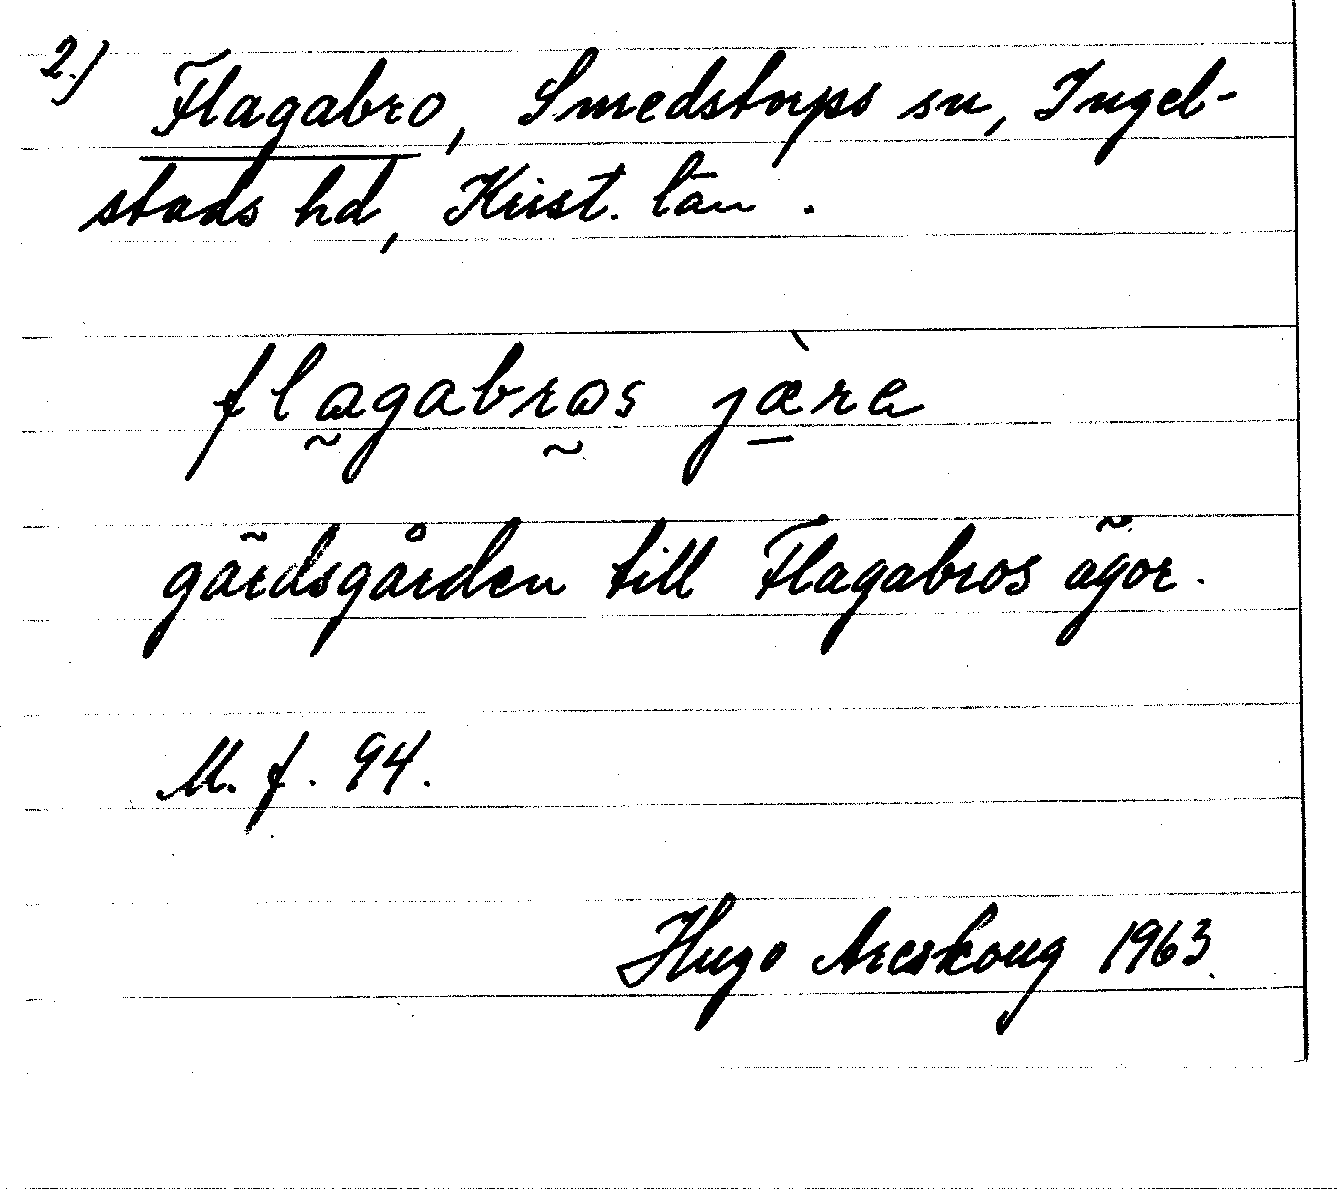 2.) Flagabro, Smedstorps sn, Ingel-
stads hd, Krist. län.
flagabros jæ̀re
gärdsgården till Flagabros ägor.
M. f. 94.
Hugo Areskoug 1963.